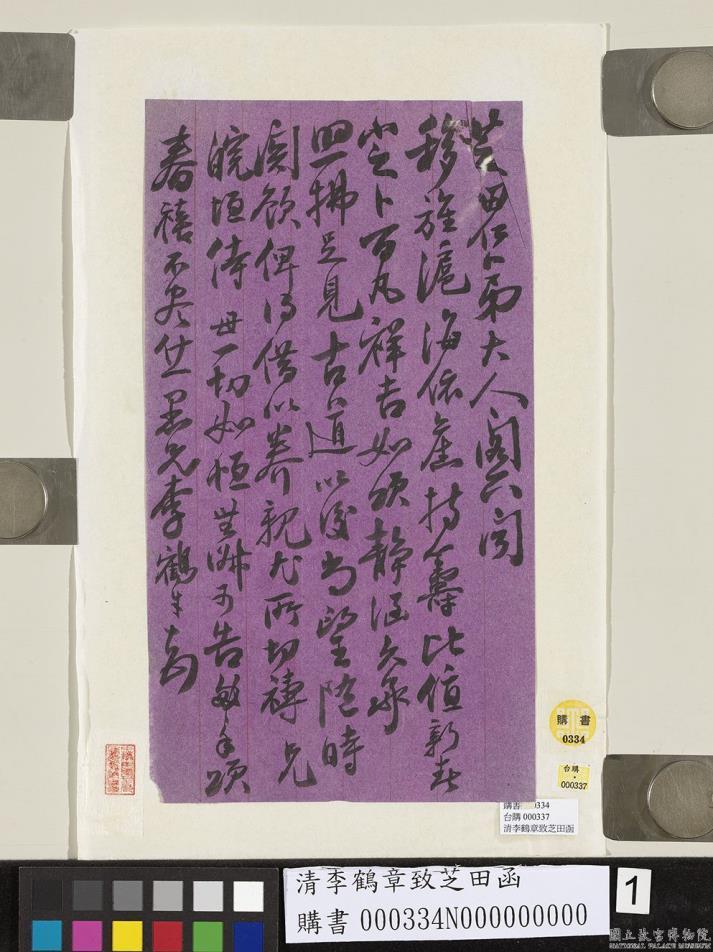 芝田仁弟大人閣下聞
移旌滬海依舊持籌比值新春
定卜百凡祥吉如頌靜涵久承
照拂足見古道以後尚望隨時
關顧俾得借以養親尤所切禱兄
皖垣侍母一切如恒無堪可告敬頌
春禧不盡 愚兄李鶴章
購書
0334
台購
000337
購書 0334
台購 000337
清李鶴章致芝田函
清李鶴章致芝田函
購書 000334N000000000
1
國立故宮博物院
NATIONAL PALACE MUSEUM